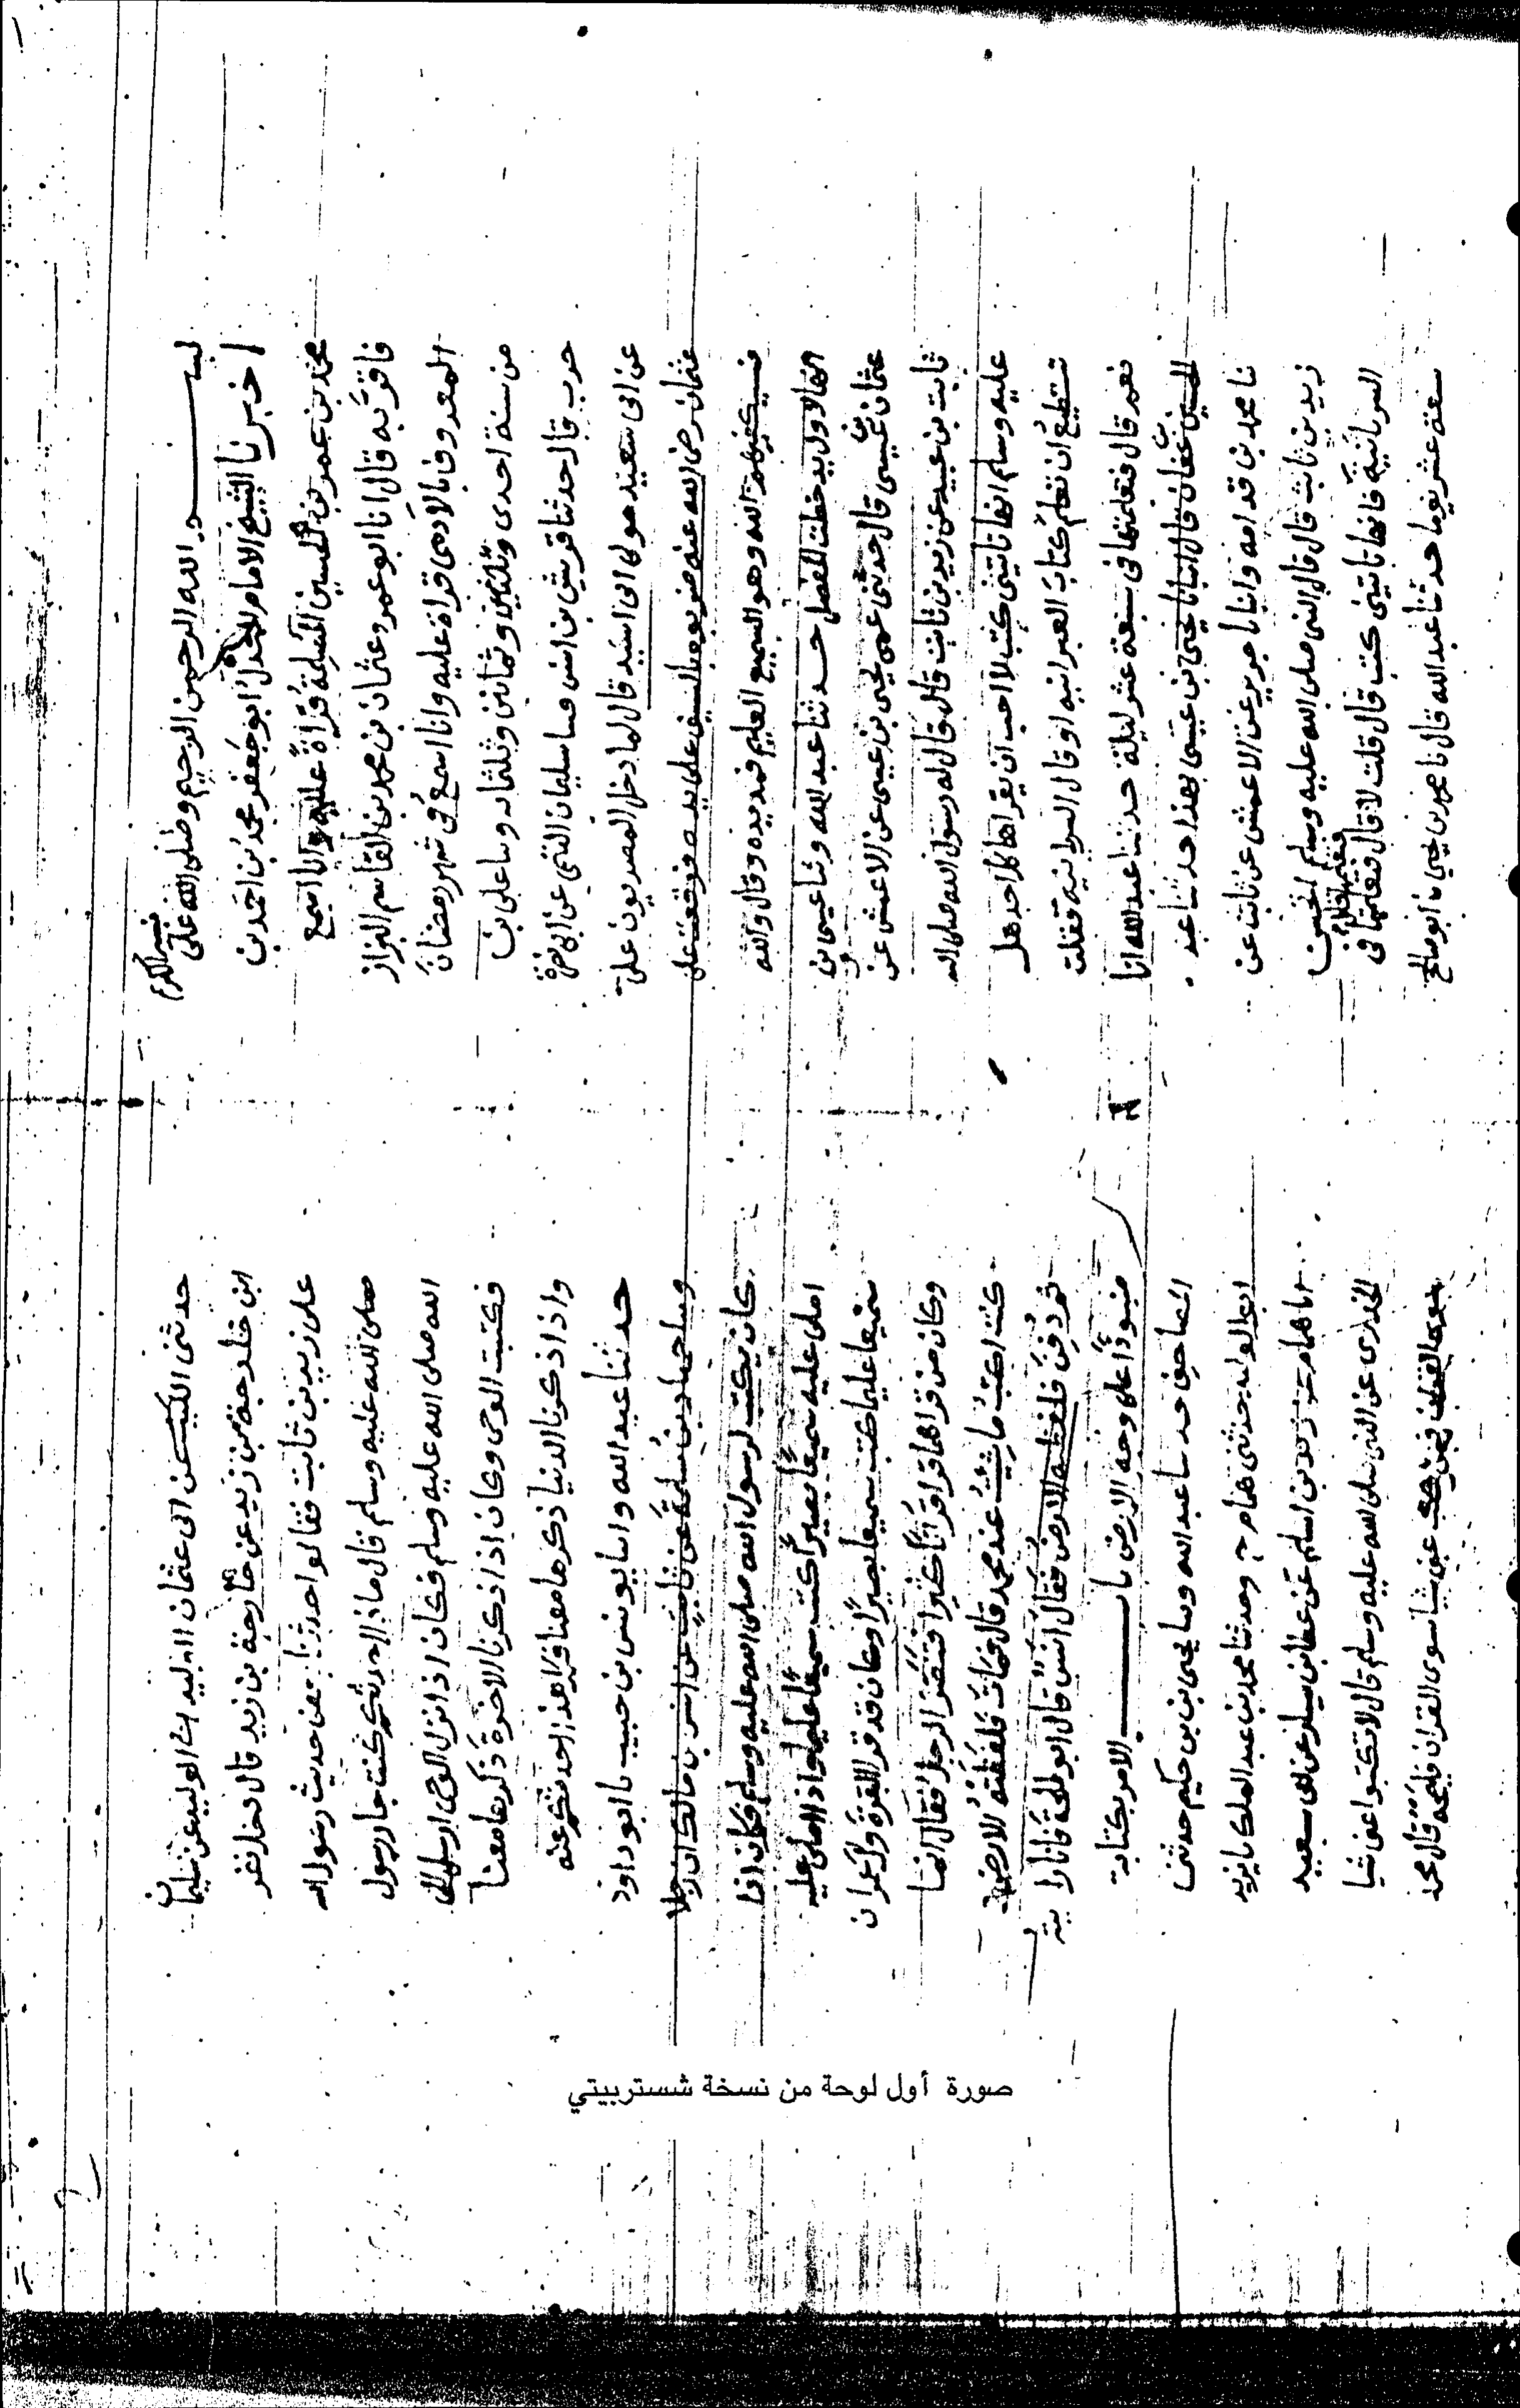 بسم الله الرحمن الرحيم وصلى الله على
اخبرنا الشيخ الامام العدل ابو جعفر محمد بن احمد بن
محمد بن عمر بن الحسين المسلمة قراة عليه وانا اسمع
فاقر به قال انا ابو عمرو عثمان بن محمد بن القاسم البزاز
المعروف بابالادمى قراة عليه وانا اسمع فى شهر رمضان
من سنة احدى وثمانين وثلثمائه وسا على بن
حرب قال حدثنا قريش بن انس سا سليمان التيمى عن ابى نضرة
عن ابى سعيد مولى ابى اسيد قال لما دخل المصريون على
عثمان رضى الله عنه ضربوه بالسيف على يده فوقعت على
فسيكفيكهم الله وهو السميع العليم فمد يده وقال والله
انها لاول يد خطت المفصل حدثنا عبد الله وثنا عيسى بن
عثمان بن عيسى قال حدثنى عمى يحيى بن عيسى عن الاعمش عن
ثابت بن عبيد عن زيد بن ثابت قال قال له رسول الله صلى الله
عليه وسلم انها تاتينى كتب لا احب ان يقراها كل احد هل
تستطيع ان تعلم كتاب العبرانيه او قال السريانيه فقلت
نعم قال فتعلمتها فى سبعة عشر ليلة حدثنا عبد الله انا
الحسين بن عفان قال انبانا يحيى بن عيسى بهذا حدثنا عبد
نا محمد بن قدامه وانبانا جرير عن الاعمش عن ثابت عن
زيد بن ثابت قال قال النبى صلى الله عليه وسلم اتحسن
السريانية فانها تاتينى كتب قال قلت لا قال فتعلمتها فى
سبعة عشر يوما حدثنا عبد الله قال نا محمد بن يحيى نا ابو صالح
حدثنى الليث عن ابى عثمان الوليد بن ابى الوليد عن سليمان
ابن خارجة بن زيد عن خارجة بن زيد قال دخل نفر
على زيد بن ثابت فقالوا حدثنا بعض حديث رسول الله
صلى الله عليه وسلم قال ماذا احدثكم كنت جار رسول
الله صلى الله عليه وسلم فكان اذا نزل الوحى ارسل الى
فكتبت الوحى وكان اذا ذكرنا الاخرة ذكرها معنا
واذا ذكرنا الدنيا ذكرها معنا فكل هذا احدثكم عنه
حدثنا عبد الله وانبا يونس بن حبيب نا ابو داود
وسا حماد بن سلمة عن ثابت عن انس بن مالك ان رجلا
كان يكتب لرسول الله صلى الله عليه وسلم فكان اذا
املى عليه سميعا بصيرا كتب سميعا عليما واذا املى عليه
سميعا عليما كتب سميعا بصيرا وكان قد قرا البقرة وال عمران
وكان من قراهما قرا قرانا كثيرا فتنصر الرجل فقال انما
كنت اكتب ما شئت عند محمد قال فمات فلفظته الارض
ثم دفن فلفظته الارض فقال انس قال ابو طلحة فانا رايته
منبوذا على وجه الارض باب الامر بكتابة
المصاحف حدثنا عبد الله وسا يحيى بن حكيم حدثنى
ابو الوليد حدثنى همام ح وحدثنا محمد بن عبد الملك نا يزيد
انا همام عن زيد بن اسلم عن عطا بن يسار عن ابى سعيد
الخدرى عن النبى صلى الله عليه وسلم قال لا تكتبوا عنى شيا
سوى القران فمن كتب عنى شيا سوى القران فليمحه قال محمد
صورة أول لوحة من نسخة شستربيتي